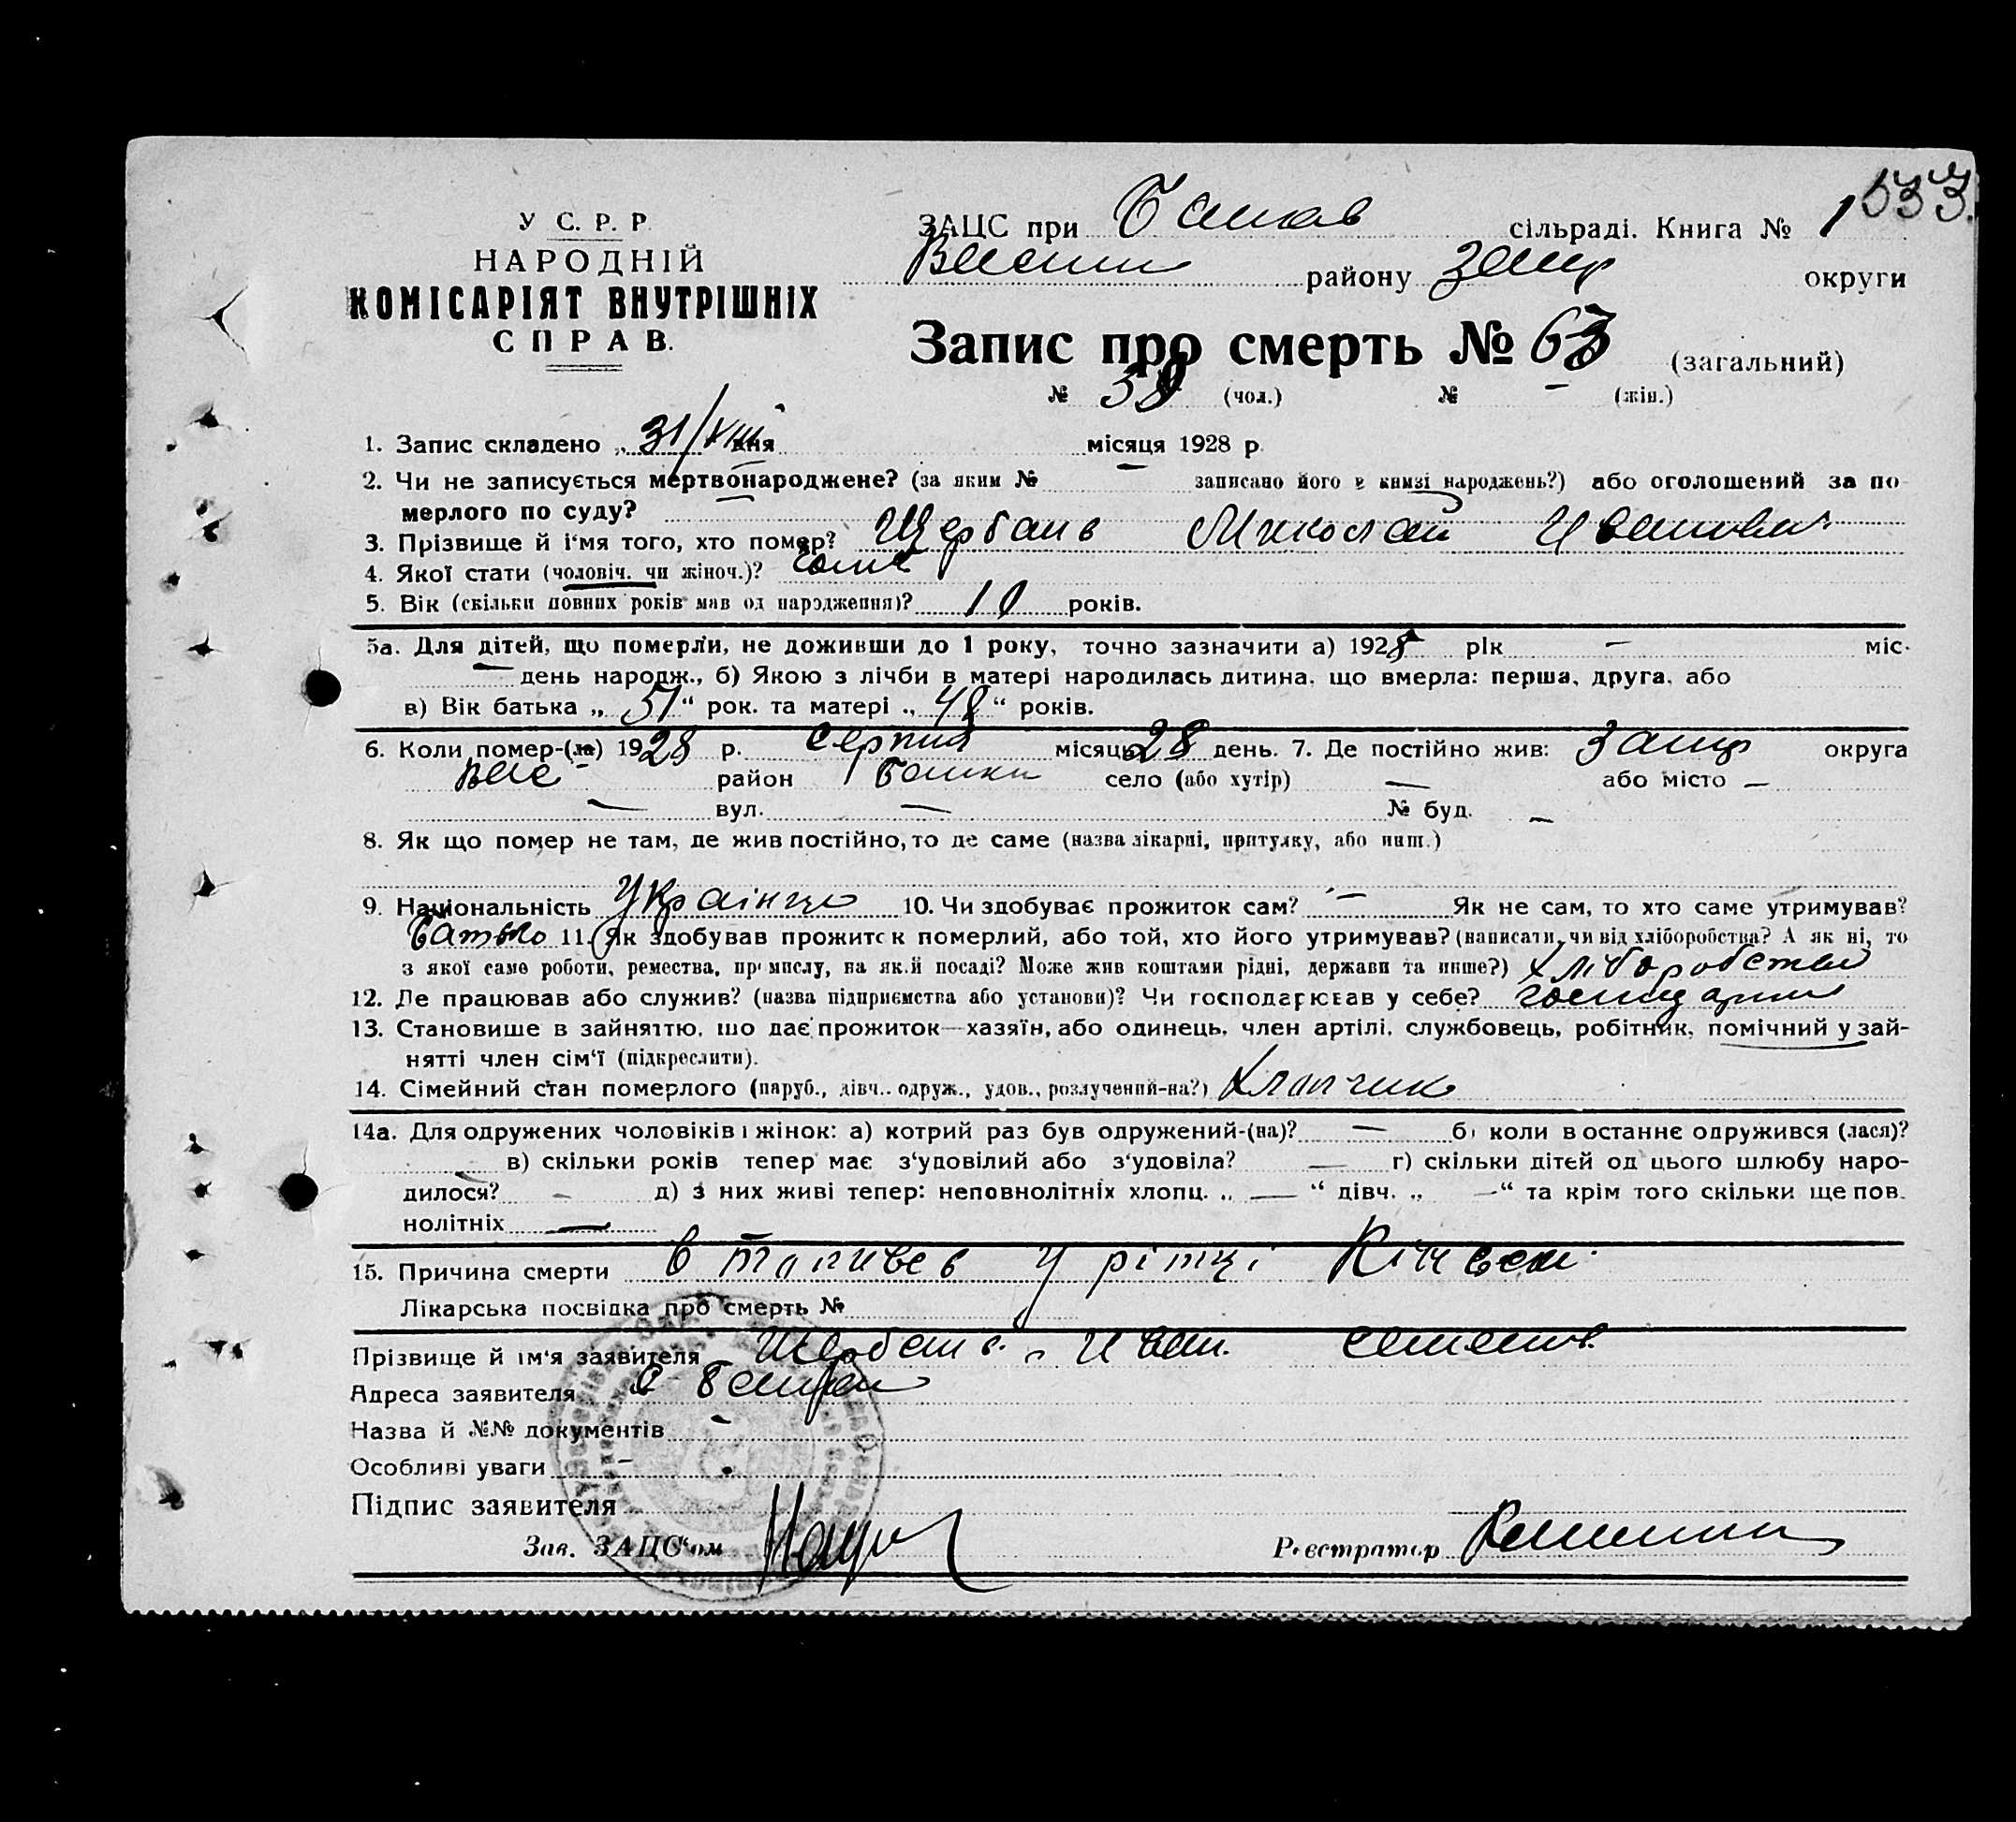 533.
У С. Р. Р.
ЗАЦС при сільраді. Книга № 1
НАРОДНІЙ
району Запор округи
КОМІСАРІЯТ ВНУТРІШНІХ
СПРАВ.
Запис про смерть № 63 (загальний)
№ 38 (чол.) № – (жін.)
1. Запис складено „ 31/VIII дня місяця 1928 р.
2. Чи не записується мертвонароджене? (за яким № – записано його в книзі народжень?) або оголошений за по
мерлого по суду? —
3. Прізвище й і'мя того, хто помер? Щербань Миколай Иванович
4. Якої стати (чоловіч. чи жіноч.)?
5. Вік (скільки повних років мав од народження)? 10 років.
5а. Для дітей, що померли, не доживши до 1 року, точно зазначити а) 1928 рік – міс.
— день народж., б) Якою з лічби в матері народилась дитина, що вмерла: перша, друга, або
в) Вік батька „ 51 “ рок. та матері „ 48 “ років.
6. Коли помер-(ла) 1928 р. серпня місяць 28 день. 7. Де постійно жив: Запор округа
Вас район Балки село (або хутір) — або місто —
— вул. — № буд. —
8. Як що помер не там, де жив постійно, то де саме (назва лікарні, притулку, або инш.)
9. Національність Українць 10. Чи здобуває прожиток сам? — Як не сам, то хто саме утримував?
батько 11. Як здобував прожиток померлий, або той, хто його утримував? (написати, чи від хліборобства? А як ні, то
з якої саме роботи, ремества, промислу, на якій посаді? Може жив коштами рідні, держави та инше?) хліборобством
12. Де працював або служив? (назва підприємства або установи)? Чи господарював у себе?
13. Становище в зайняттю, що дає прожиток—хазяїн, або одинець, член артілі, службовець, робітник, помічний у зай-
нятті член сім'ї (підкреслити).
14. Сімейний стан померлого (паруб., дівч., одруж., удов., розлучений-на?) хлопчик
14а. Для одружених чоловіків і жінок: а) котрий раз був одружений-(на)? — б) коли в останнє одружився (лася)?
— в) скільки років тепер має з'удовілий або з'удовіла? — г) скільки дітей од цього шлюбу наро-
дилося? – д) з них живі тепер: неповнолітніх хлопц. „ — “ дівч. „ — “ та крім того скільки ще пов.
нолітніх —
15. Причина смерти втопився у рітці
Лікарська посвідка про смерть №
Прізвище й ім'я заявителя Щербань Иван
Адреса заявителя с
Назва й №№ документів –
Особливі уваги –
Підпис заявителя
Зав. ЗАЦС'ом Реєстратор